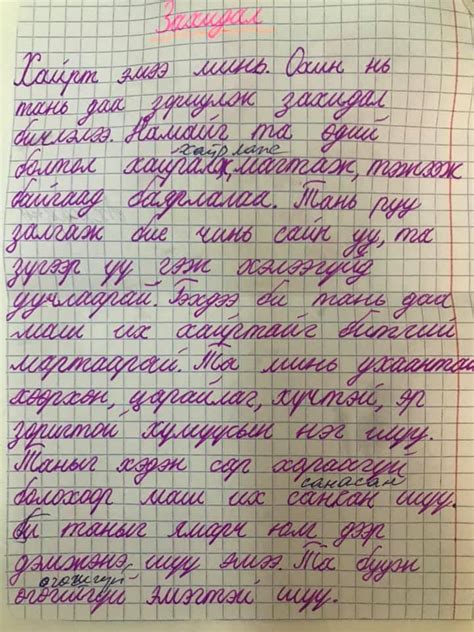 Захидал
Хайрт эмээ минь. Охин нь
тань даа зориулж захидал
бичлэлээ. Намайг та өдий
хайрлаж
болтол хайралж, магтаж, тэжээж
байгаад баярлалаа. Тань руу
залгаж бие чинь сайн уу, та
зүгээр үү гэж хэлээгүйд
уучлаарай. Гэхдээ би тань даа
маш их хайртайг битгий
мартаарай. Та минь ухаантай
хөөрхөн, царайлаг, хүчтэй, эр
зоригтой хүмүүсын нэг шүү.
Таныг хэдэн сар хараагүй
санасан
болохоор маш их сансан шүү.
Би таныг ямарч юм дээр
дэмжэнэ шүү эмээ. Та бүүр
өгөөшгүй
өгөйгүй эмэгтэй шүү.